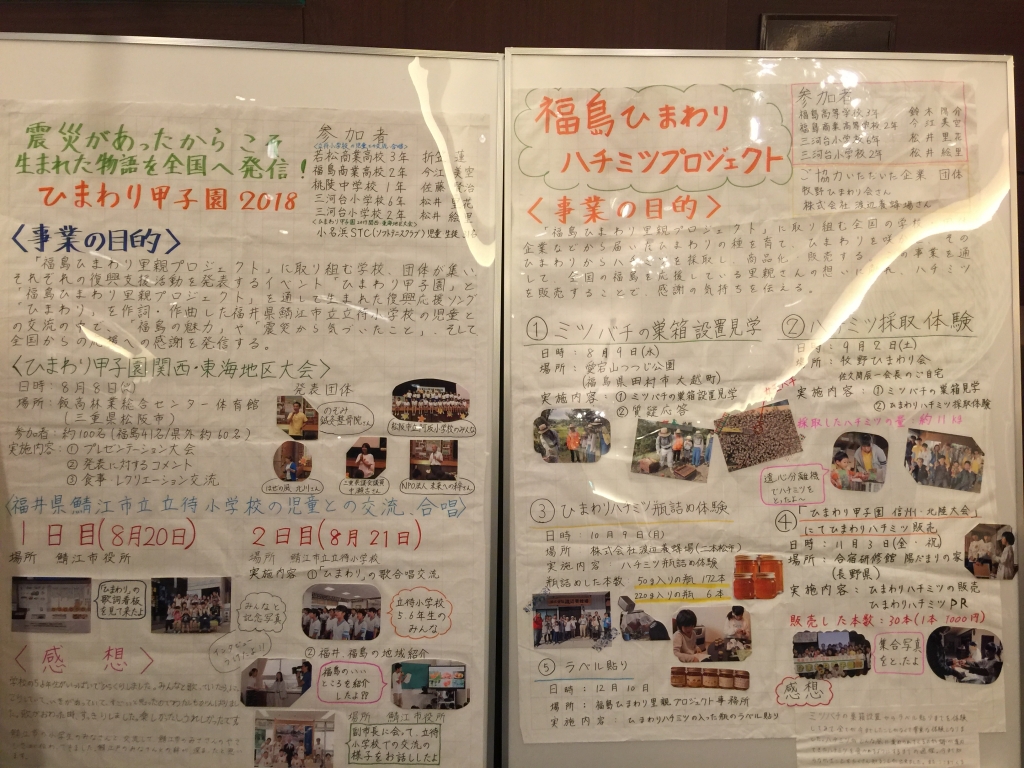 震災があったからこそ
生まれた物語を全国へ発信!
ひまわり甲子園2018
参加者
若松商業高校3年 折笠 蓮
福島商業高校2年 今江 美空
桃陵中学校1年 佐藤
三河台小学校6年 松井 里花
三河台小学校2年 松井 絵里
小名浜STC(ソフトテニスクラブ)児童 生徒
〈事業の目的〉
「福島ひまわり里親プロジェクト」に取り組む学校、団体が集い
それぞれの復興支援活動を発表するイベント「ひまわり甲子園」と
「福島ひまわり里親プロジェクト」を通して生まれた復興応援ソング
「ひまわり」を作詞・作曲した福井県鯖江市立立待小学校の児童と
の交流の中で、「福島の魅力」や「震災から気づいたこと」、そして
全国からの応援への感謝を発信する。
〈ひまわり甲子園関西・東海地区大会〉
日時:8月8日(水)
場所:飯高林業総合センター 体育館
(三重県松阪市)
参加者:約100名(福島41名/県外約60名)
実施内容:①プレゼンテーション大会
②発表に対するコメント
③食事・レクリエーション交流
発表団体
のぞみ
鍼灸整骨院さん
松阪市立 小学校のみんな
はぜの風 北川さん
三重県議会議員
中瀬古さん
NPO法人 未来への絆さん
〈福井県鯖江市立立待小学校の児童との交流、合唱〉
1日目(8月20日)
場所 鯖江市役所
「ひまわり」の
歌詞看板
を見て来たよ
みんなと
記念写真
2日目(8月21日)
場所 鯖江市立立待小学校
実施内容 ①「ひまわり」の歌合唱交流
立待小学校
5 6年生の
みんな
②福井、福島の地域紹介
インタビュー
うけたよ!
福島のいい
ところを紹介
したよ!?
場所 鯖江市役所
副市長に会って、立待
小学校での交流の
様子をお話ししたよ
〈感想〉
福島ひまわり
ハチミツプロジェクト
参加者
福島高等学校3年 鈴木
福島商業高等学校2年 今江 美空
三河台小学校6年 松井 里花
三河台小学校2年 松井 絵里
ご協力いただいた企業 団体
牧野ひまわり会さん
株式会社 渡辺養蜂場さん
〈事業の目的〉
「福島ひまわり里親プロジェクト」に取り組む全国の学校
企業などから届いたひまわりの種を育て、ひまわりを咲かせ、その
ひまわりからハチミツを採取し、商品化、販売する。この事業を通
して、全国の福島を応援している里親さんの想いにふれ、ハチミツ
を販売することで、感謝の気持ちを伝える。
①ミツバチの巣箱設置見学
日時:8月9日(水)
場所:愛宕山つつじ公園
(福島県田村市大越町)
実施内容:①ミツバチの巣箱設置見学
②質疑応答
②ハチミツ採取体験
日時:9月2日(土)
場所:牧野ひまわり会
佐久間辰一会長のご自宅
実施内容:①ミツバチの巣箱見学
②ひまわりハチミツ採取体験
採取したハチミツの量:約11kg
ミツバチ
遠心分離機
でハチミツを
とったよ〜
③ひまわりハチミツ瓶詰め体験
日時:10月9日(月)
場所 株式会社渡辺養蜂場(二本松市)
実施内容 ハチミツ瓶詰め体験
瓶詰めした本数 50g入りの瓶 172本
220g入りの瓶 6本
④「ひまわり甲子園 信州・北陸大会」
にてひまわりハチミツ販売
日時:11月3日(金・祝)
場所:合宿研修館 陽だまりの家
(長野県)
実施内容:ひまわりハチミツの販売
ひまわりハチミツPR
販売した本数:30本(1本 1000円)
集合写真
をとったよ
⑤ラベル貼り
日時:12月10日
場所:福島ひまわり里親プロジェクト事務所
実施内容:ひまわりハチミツの入った瓶のラベル貼り
感想